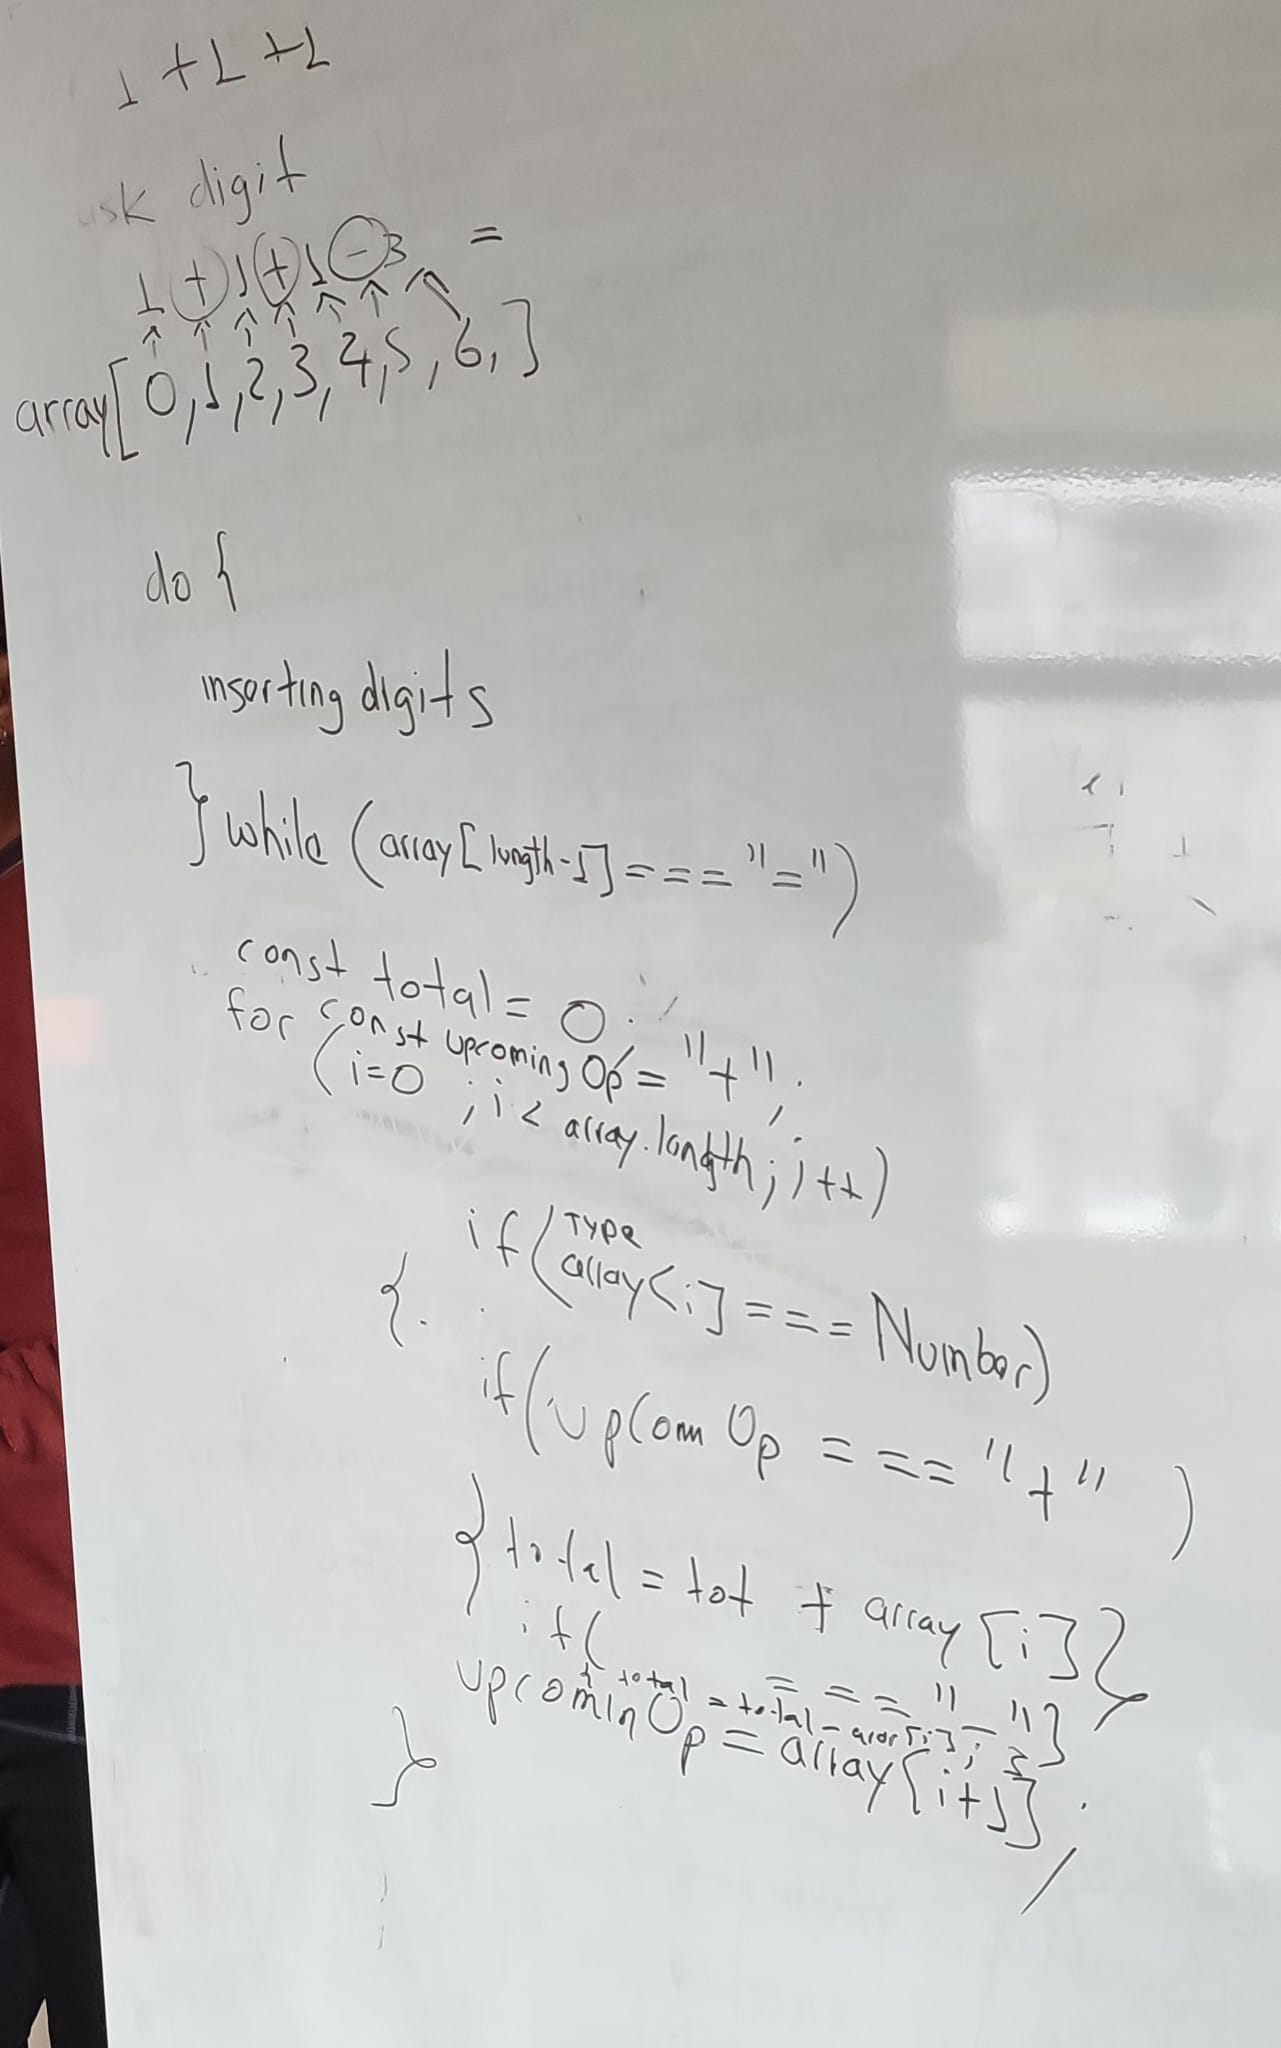 1 + 1 + 1
ask digit
1 + 1 + 1 - 3 =
array[0,1,2,3,4,5,6,]
do {
inserting digits
} while (array[length-1] === "=")
const total = 0;
const upcoming Op = "+";
for (i=0 ; i < array.length; i++)
if (Type array[i] === Number)
{
if (upCom Op === "+" )
{ total = tot + array [i] }
if( === "-"}
{ total = total - arar[i]; }
upcominOp = array[i+1] ;
}